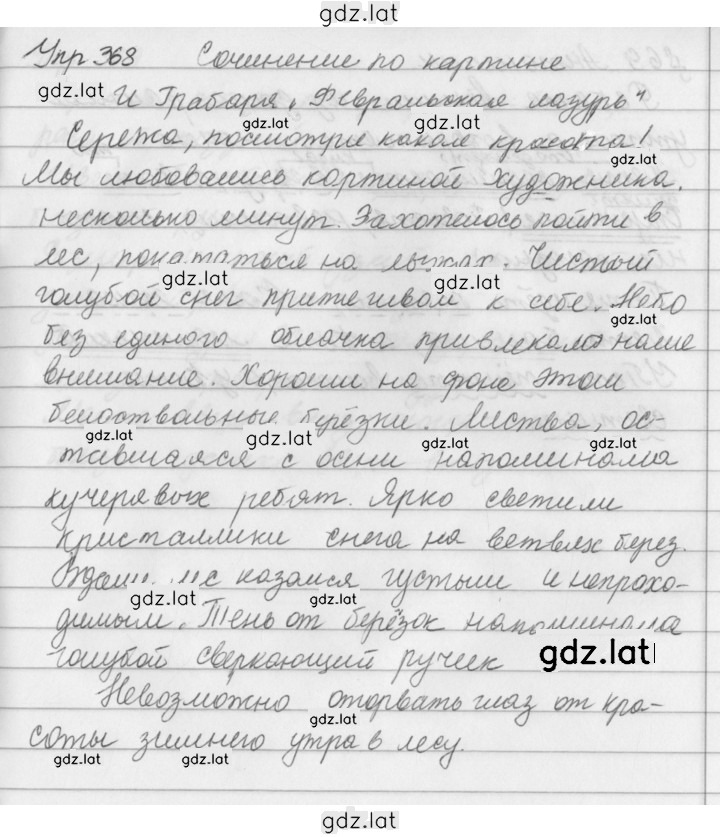 gdz.lat
Упр 368 Сочинение по картине
gdz.lat
И Грабаря „Февральская лазурь"
gdz.lat
gdz.lat
Сережа, посмотри какая красота!
gdz.lat
Мы любовались картиной художника.
несколько минут. Захотелось пойти в
лес, покататься на лыжах. Чистый
gdz.lat
gdz.lat
голубой снег притягивал к себе. Небо
gdz.lat
без единого облачка привлекало наше
внимание. Хороши на фоне этом
белоствольные берёзки. Листва, ос-
gdz.lat
gdz.lat
gdz.lat
gdz.lat
тавшаяся с осени напоминала
кучерявых ребят. Ярко светили
кристаллики снега на ветвях берез.
Вдали лес казался густым и непрохо-
gdz.lat
gdz.lat
димым. Тень от берёзок напоминала
голубой сверкающий ручеек
gdz.lat
Невозможно оторвать глаз от кра-
gdz.lat
соты зимнего утра в лесу.
gdz.lat
gdz.lat
gdz.lat
gdz.lat